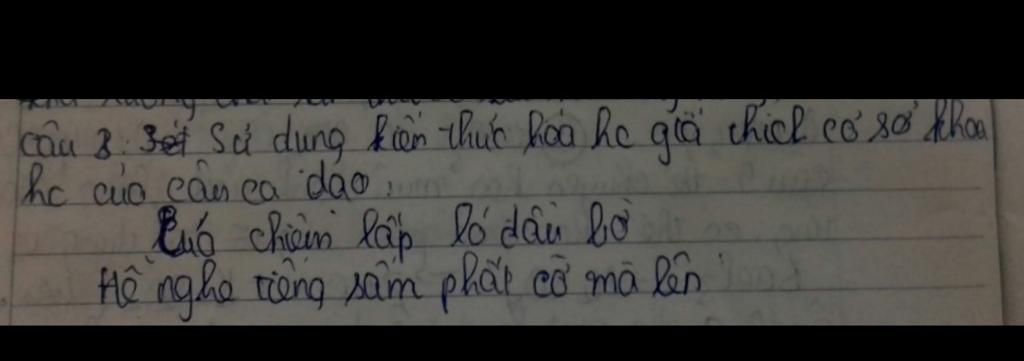 Câu 3: Sử dụng kiến thức hóa hc giải thích cơ sở khoa
hc của câu ca dao:
Lúa chiêm lấp ló đầu bờ
Hễ nghe tiếng sấm phất cờ mà lên